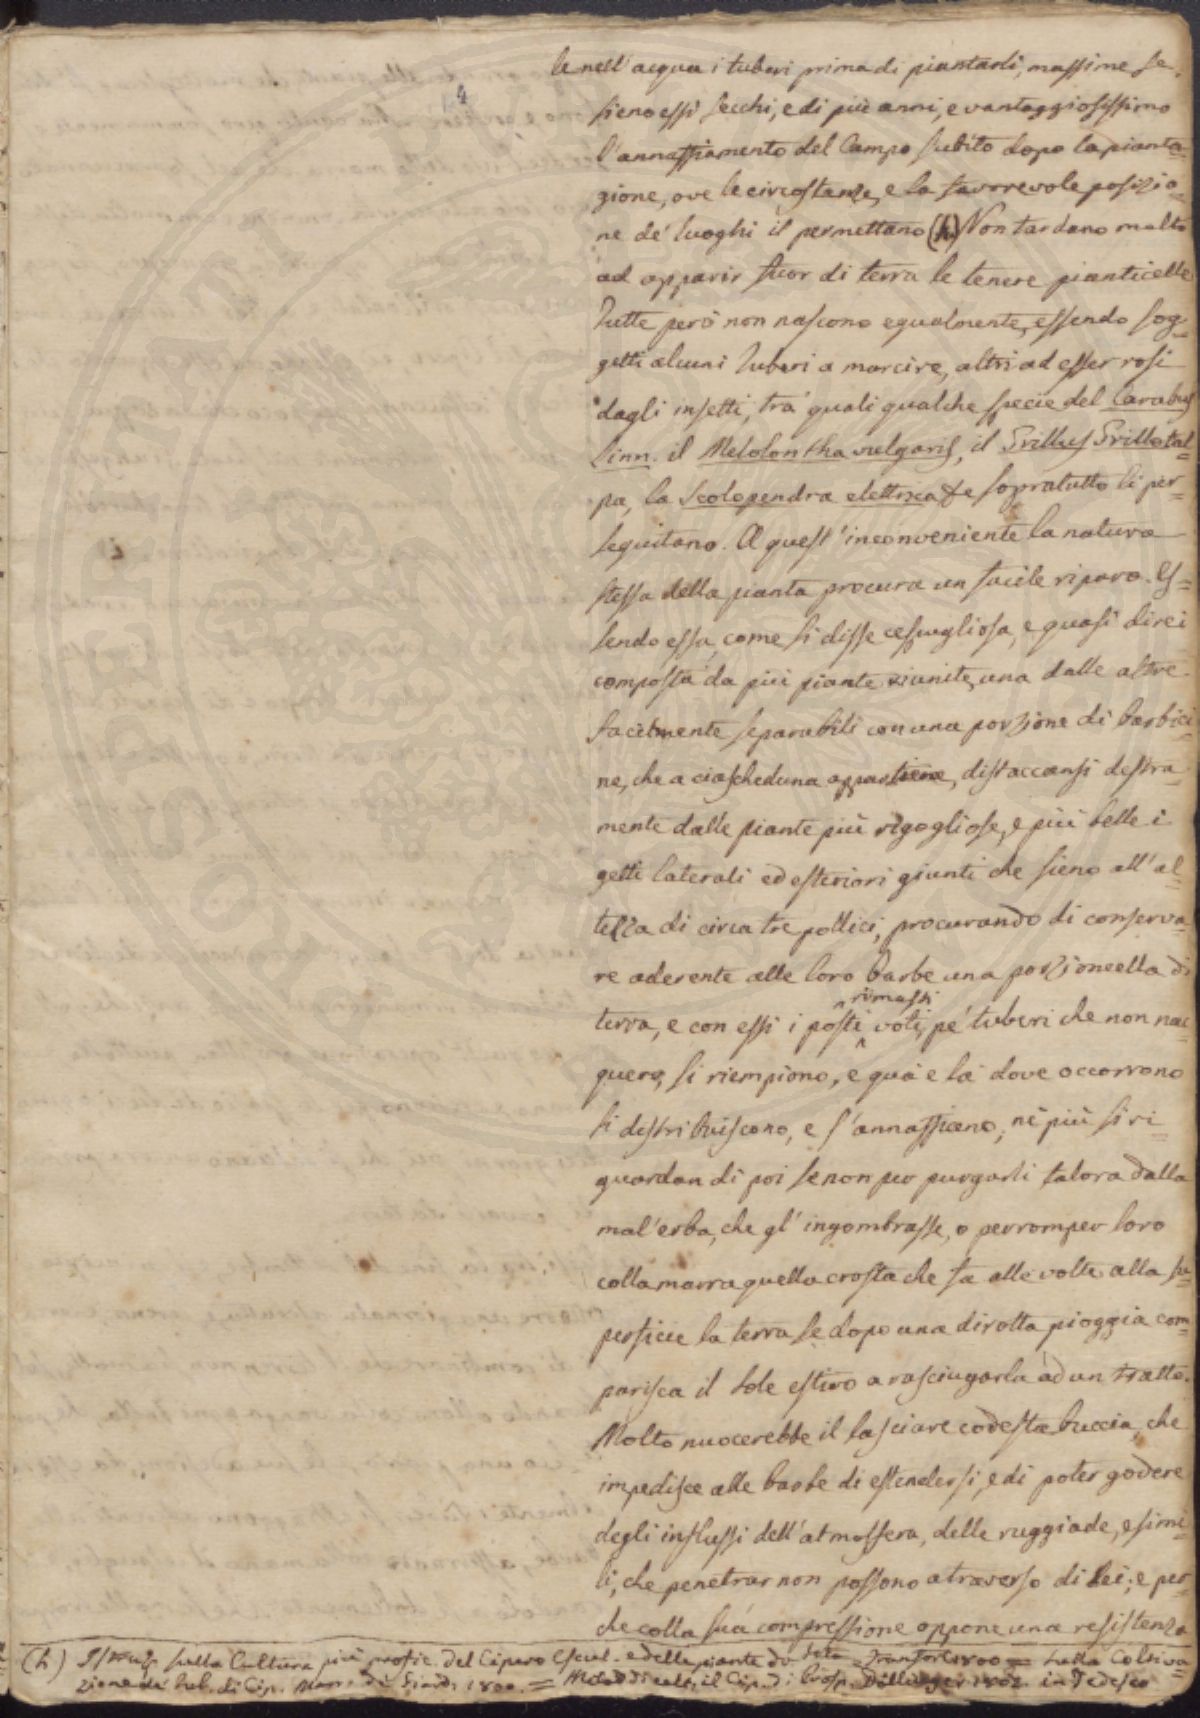 4
le nell'acqua i tuberi prima di piantarli, massime se
sieno essi secchi, e di più anni, e vantaggiosissimo
l'annaffiamento del Campo subito dopo la pianta=
gione, ove le circostanze, e la favorevole posizio=
ne de' luoghi il permettano (h) Non tardano molto
ad apparir fuor di terra le tenere pianticelle
Tutte però non nascono egualmente, essendo sog=
getti alcuni Tuberi a marcire, altri ad esser rosi
dagli insetti, trà quali qualche specie del Carabus
Linn. il Melolontha vulgaris, il Grillus Grillotal=
pa, la Scolopendra elettrica & e sopratutto li per=
seguitano. A quest'inconveniente la natura
stessa della pianta procura un facile riparo. Es=
sendo essa, come si disse cespugliosa, e quasi direi
composta da più piante riunite, una dalle altre
facilmente separabili con una porzione di barbici=
ne, che a ciascheduna appartiene, distaccansi destra=
mente dalle piante più rigogliose, e più belle i
getti laterali ed esteriori giunti che sieno all'al=
tezza di circa tre pollici, procurando di conserva=
re aderente alle loro barbe una porzioncella di
terra, e con essi i posti rimasti voti, pe' tuberi che non nac=
quero, si riempiono, e quà e là dove occorrono
si distribuiscono, e s'annaffiano; nè più si ri=
guardan di poi se non per purgarli talora dalla
mal'erba, che gl'ingombrasse, o per romper loro
colla marra quella crosta che fa alle volte alla su=
perficie la terra se dopo una dirotta pioggia com=
parisca il sole estivo a rasciugarla ad un tratto.
Molto nuocerebbe il lasciare codesta buccia, che
impedisce alle barbe di estendersi, e di poter godere
degli influssi dell'atmosfera, delle ruggiade, e simi=
li, che penetrar non possono atraverso di lei; e per=
che colla sua compressione oppone una resistenza
(h) Istruz. sulla Cultura più profic. del Cipero Escul. e delle piante da Seta Francfort 1800 = sulla Coltiva=
zione de' Tub. di Cip. Man. di Giard. 1800. = Metod di colt. il Cip. di Bosp. Dollinger 1802. in Tedesco